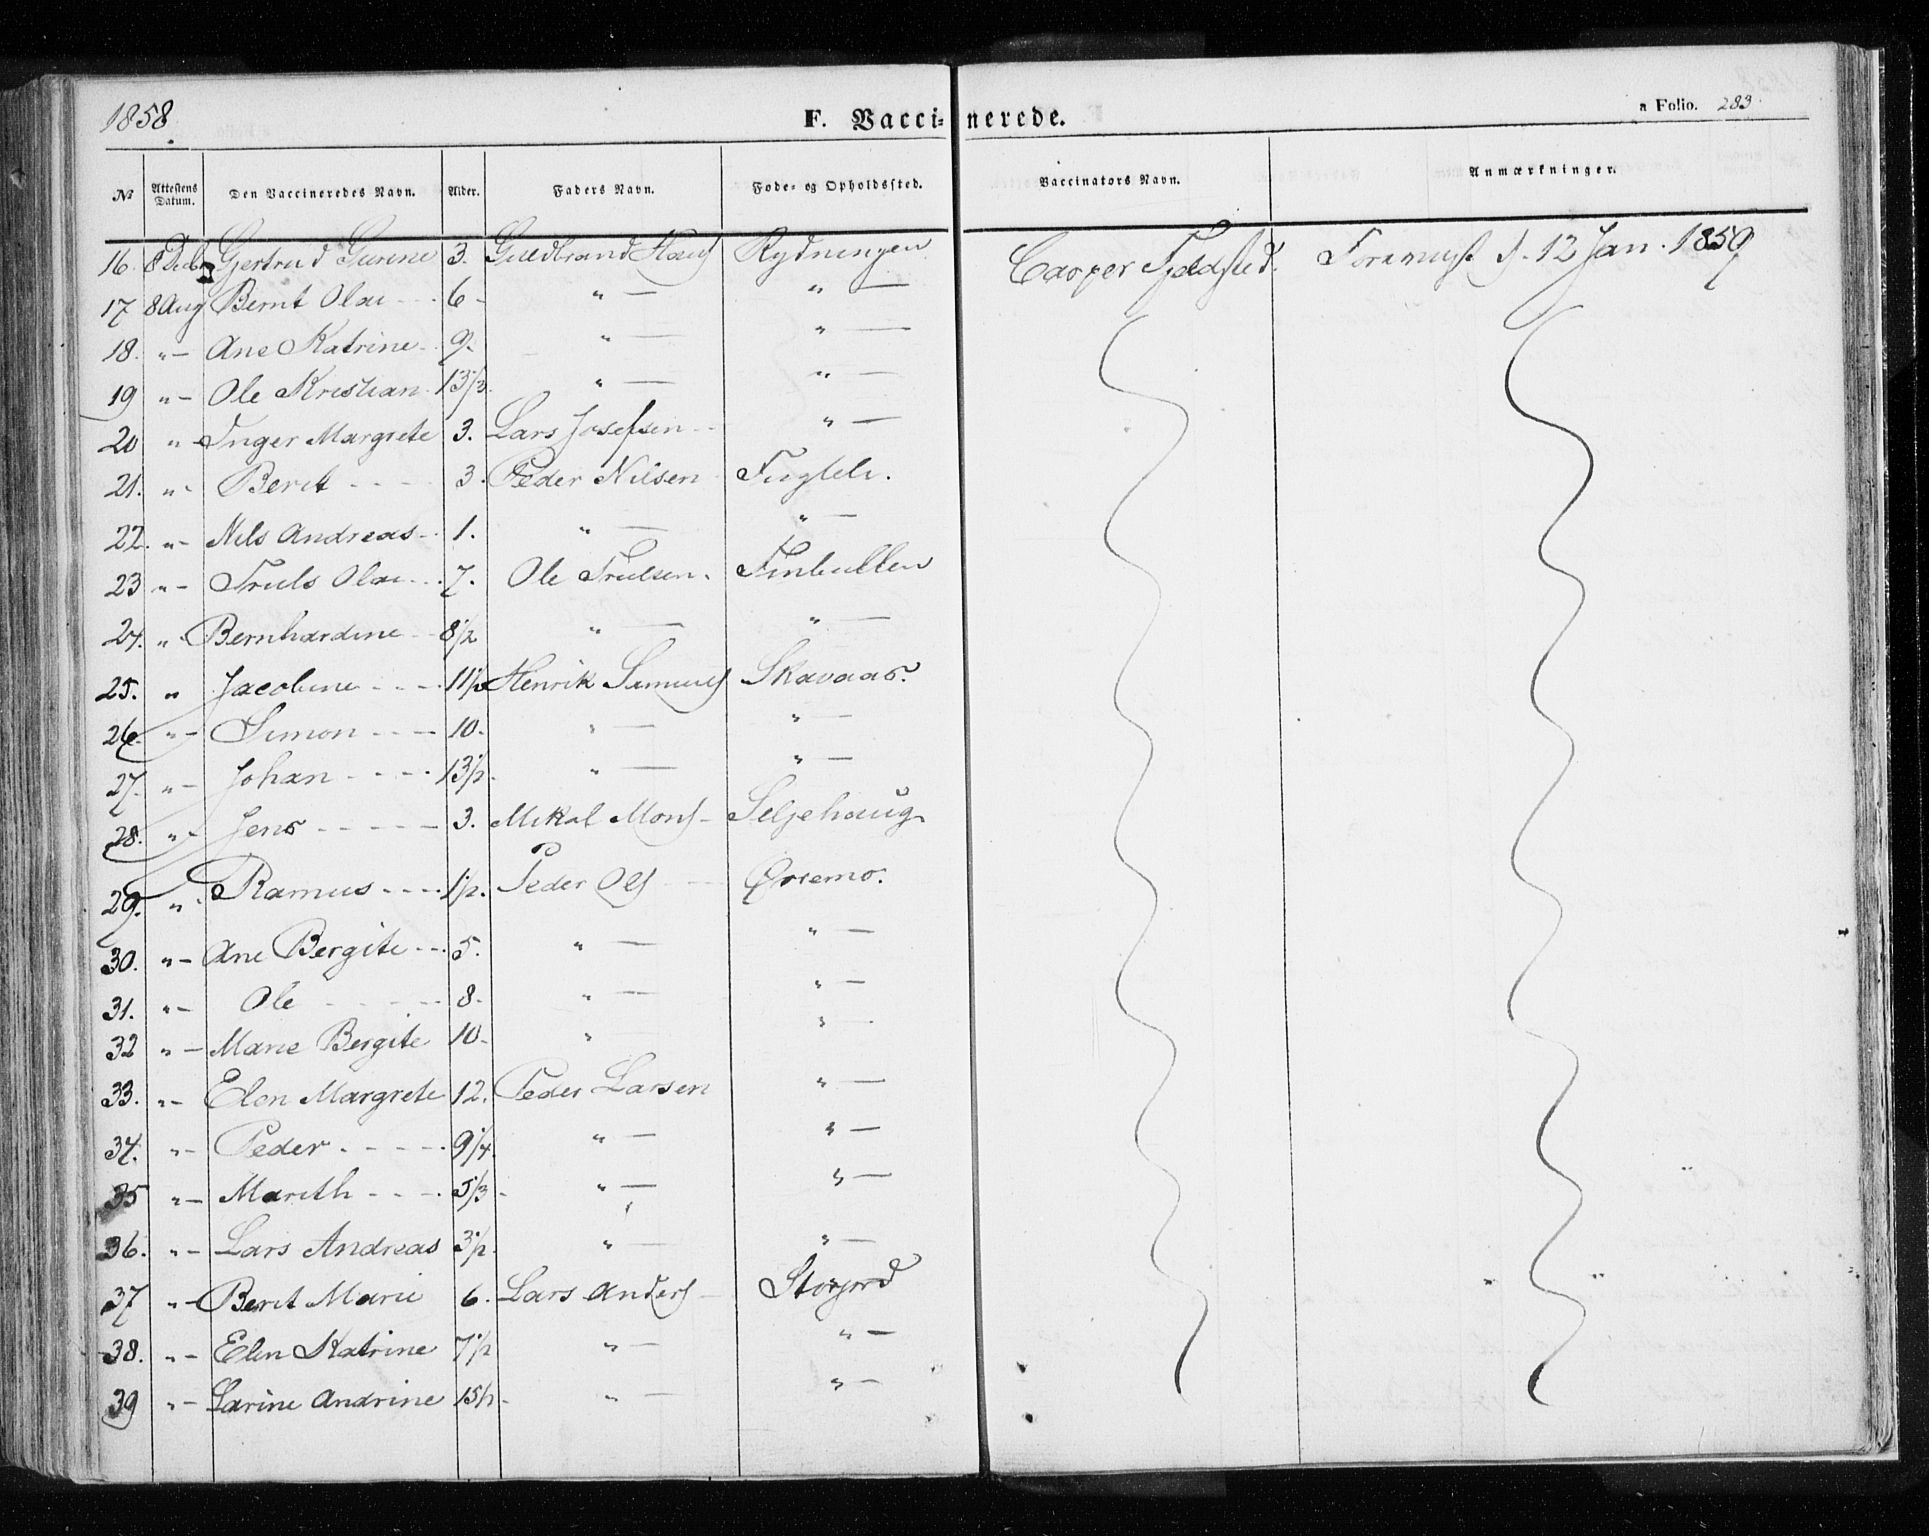 1858
F. Vaccinerede.
a Folio. 283
№ Attestens Datum. Den Vaccineredes Navn. Alder. Faders Navn. Føde- og Opholdssted. Vaccinators Navn. Anmærkninger.
16. Gjertrud Gurine 3. Guldbrand Hans Rydningen Casper Fjeldsted. d. 12 Jan. 1859
17 8 Aug Bernt Olai - - - 6 - " — " —
18. " — Ane Katrine - 9. " — " —
19 " — Ole Kristian - 13 1/2. " — " —
20 " — Inger Margrete 3. Lars Josefsen - - " —
21. " - Berit - - - - 3. Peder Nilsen Fugleli.
22. " — Nils Andreas - - 1. " — " —
23 " — Truls Olai - - - 7. Ole Trulsen. Finbukken
24. " Bernhardine - - 8 1/2 " — " —
25. " Jacobine - - - 11 1/2 Henrik Simons Skavaas.
26. " — Simon - - - - 10 - " — " —
27. " — Johan - - - - 13 1/2. " — " —
28. " - Jens - - - - - 3. Mikal Mons - Seljehaug
29. " - Ramus - - - - 1 1/2. Peder Ols Øvremo.
30. " — Ane Bergite - - - 5. " — " —
31. " — Ole - - - - - 8 - " — " —
32 " — Marie Bergite 10 - " " —
33. " — Elen Margrete 12. Peder Larsen " —
34. " — Peder - - - - - 9 1/4. " — " —
35 " — Marith - - - - 5 1/3 - " — " —
36. " — Lars Andreas 3 1/2. " — " —
37 " — Berit Marie 6. Lars Anders - Storjord
38. " — Elen Katrine 7 1/2 " — " —
39 " — Larine Andrine 15 1/2 - " — " —